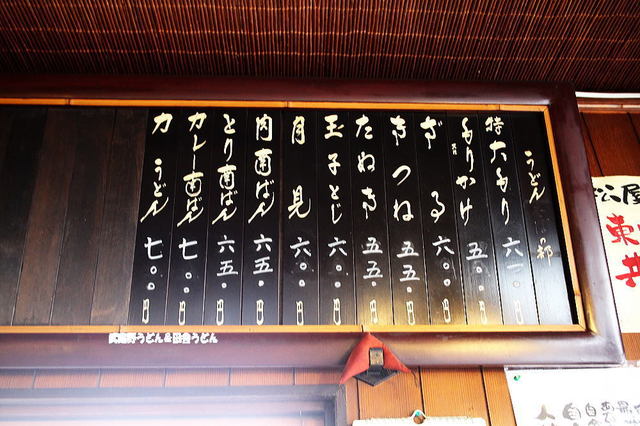 うどん の部
特大もり 六一〇円
もりかけ 五〇〇円
ざる 六〇〇円
きつね 五五〇円
たぬき 五五〇円
玉子とじ 六〇〇円
月見 六〇〇円
肉南ばん 六五〇円
とり南ばん 六五〇円
カレー南ばん 七〇〇円
力うどん 七〇〇円
武蔵野うどん&田舎うどん